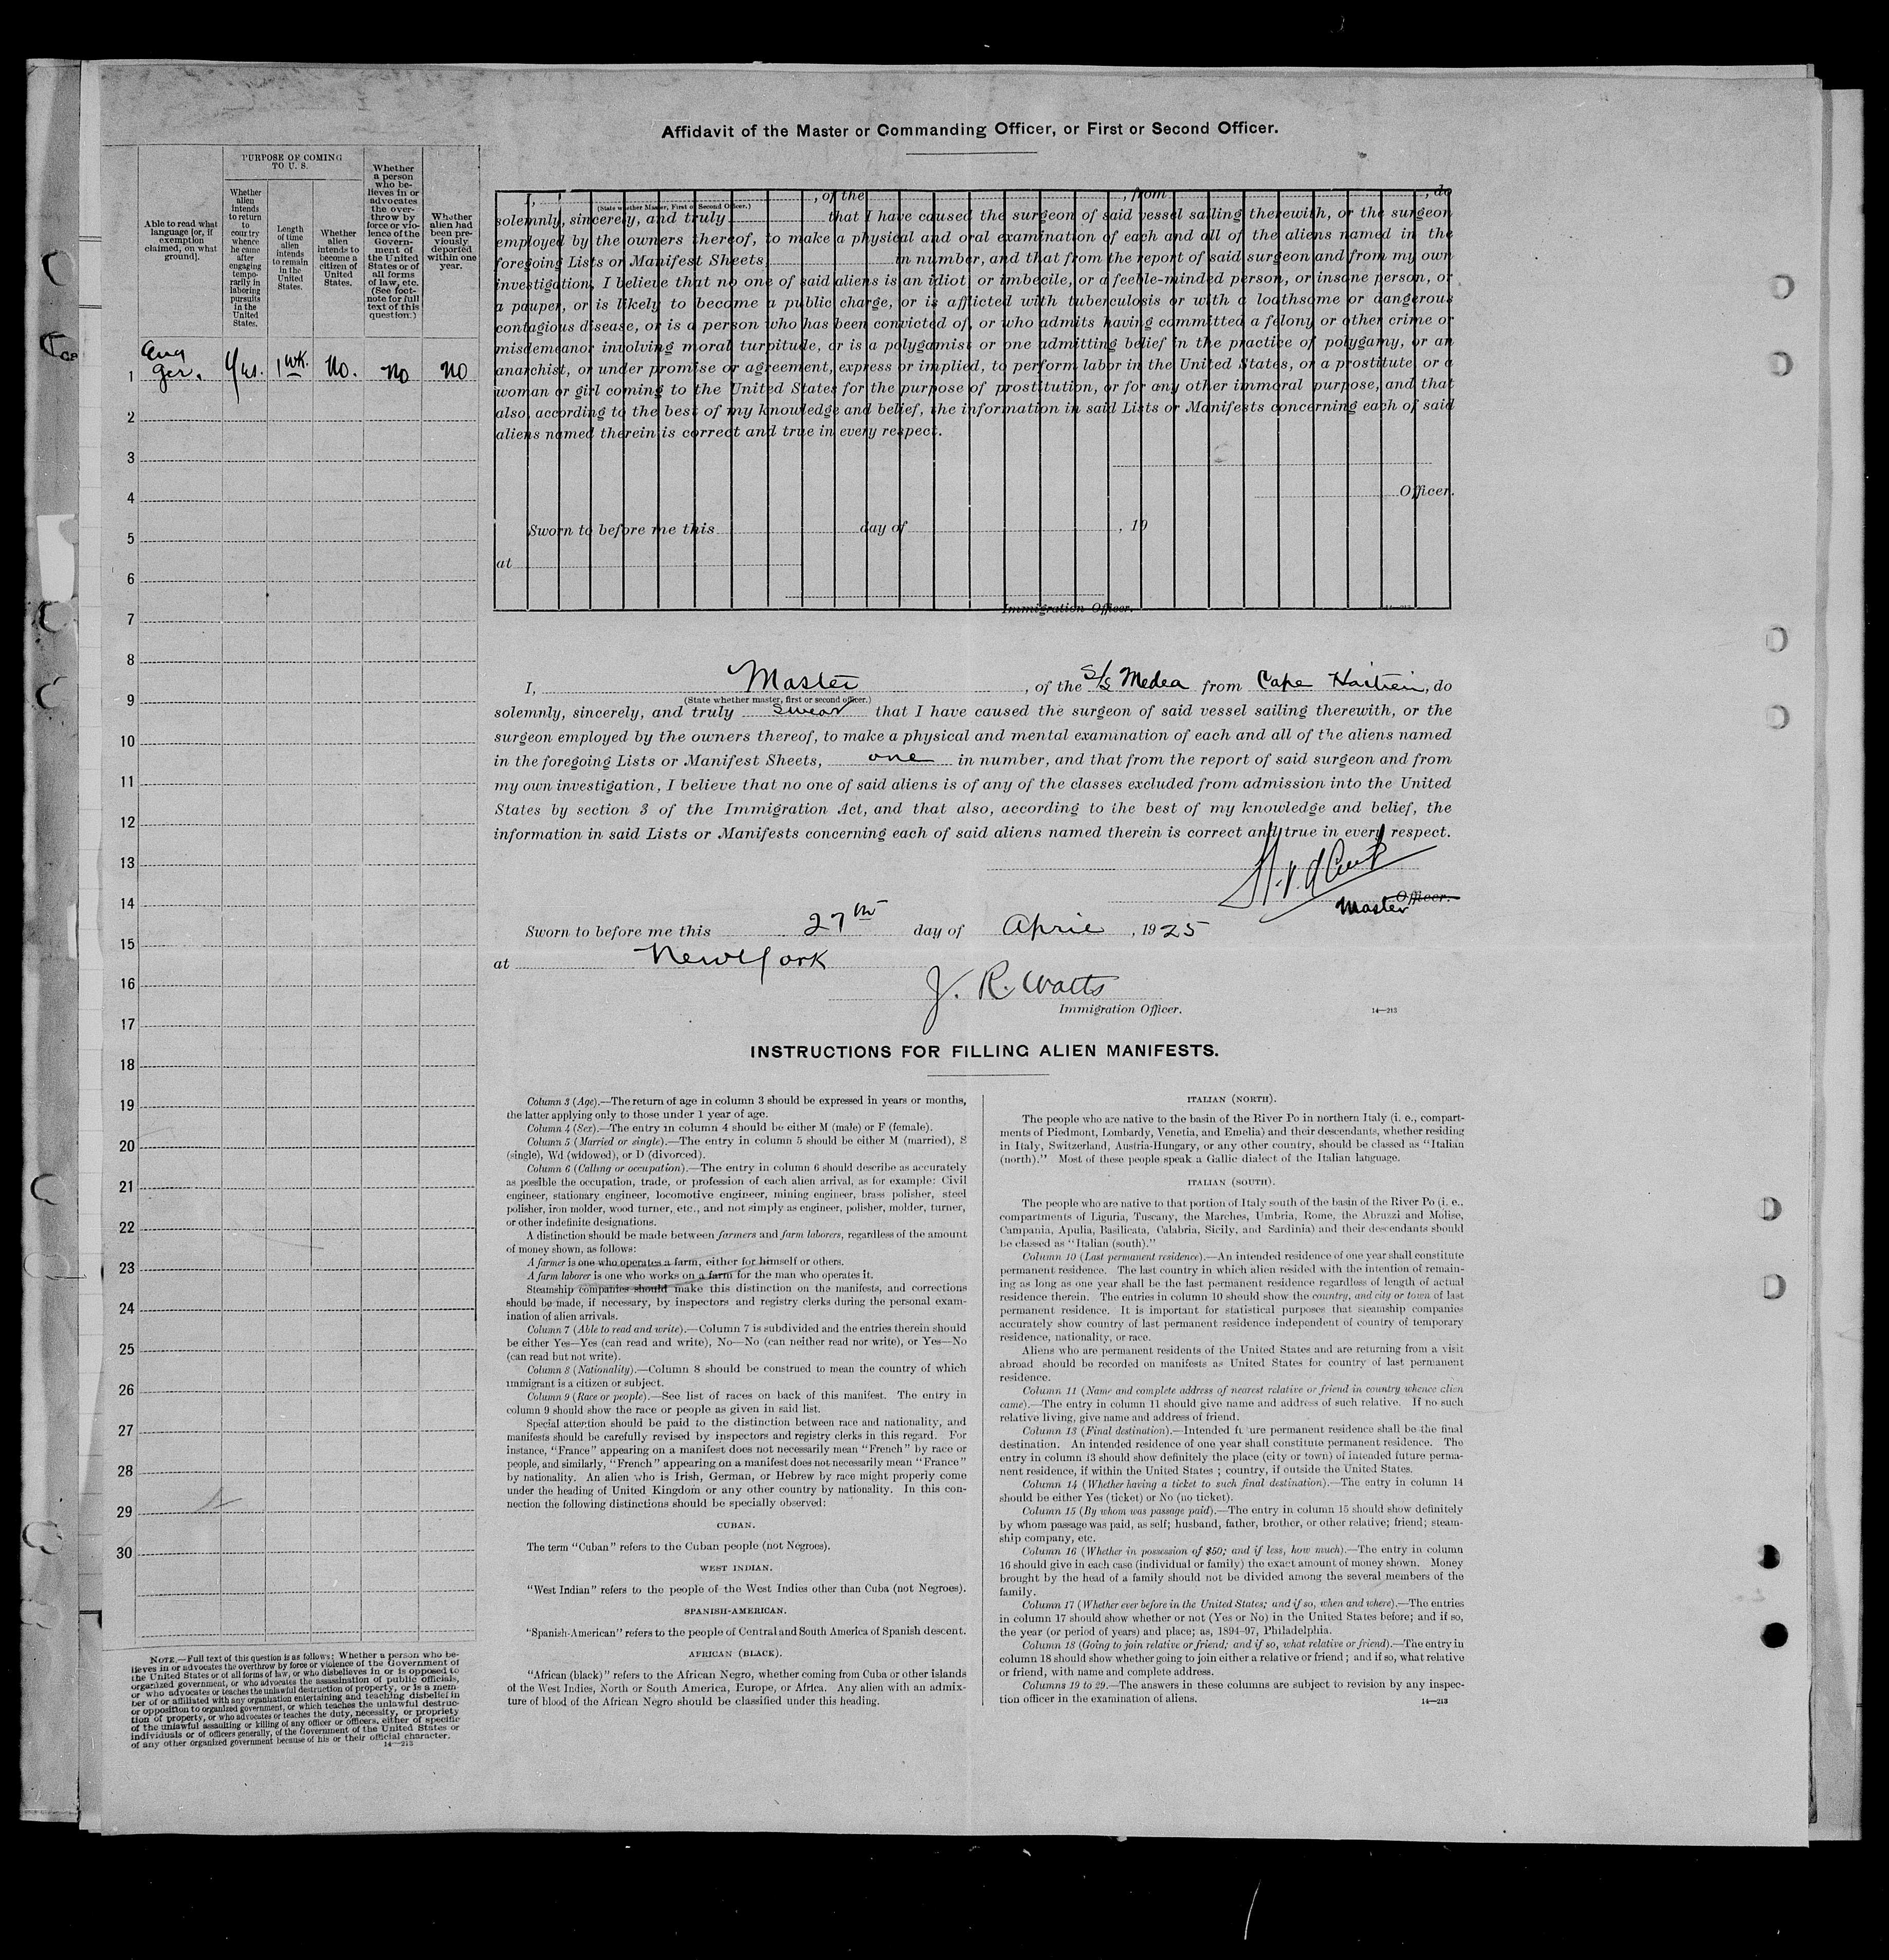 Affidavit of the Master or Commanding Officer, or First or Second Officer.
PURPOSE OF COMING
TO U. S.
Able to read what
language [or, if
exemption
claimed, on what
ground].
Whether
alien
intends
to return
to
country
whence
he came
after
engaging
tempo-
rarily in
laboring
pursuits
in the
United
States.
Length
of time
alien
intends
to remain
in the
United
States.
Whether
alien
intends to
become a
citizen of
United
States.
Whether
a person
who be-
lieves in or
advocates
the over-
throw by
force or vio-
lence of the
Govern-
ment of
the United
States or of
all forms
of law, etc.
(See foot-
note for full
text of this
question.)
Whether
alien had
been pre-
viously
deported
within one
year.
1 Eng Ger. Yes. 1 wk. No. No No
2
3
4
5
6
7
8
9
10
11
12
13
14
15
16
17
18
19
20
21
22
23
24
25
26
27
28
29
30
NOTE.—Full text of this question is as follows: Whether a person who be-
lieves in or advocates the overthrow by force or violence of the Government of
the United States or of all forms of law, or who disbelieves in or is opposed to
organized government, or who advocates the assassination of public officials,
or who advocates or teaches the unlawful destruction of property, or is a mem-
ber of or affiliated with any organization entertaining and teaching disbelief in
or opposition to organized government, or which teaches the unlawful destruc-
tion of property, or who advocates or teaches the duty, necessity, or propriety
of the unlawful assaulting or killing of any officer or officers, either of specific
individuals or of officers generally, of the Government of the United States or
of any other organized government because of his or their official character.
14—213
I, , of the , from , do
(State whether Master, First or Second Officer.)
solemnly, sincerely, and truly that I have caused the surgeon of said vessel sailing therewith, or the surgeon
employed by the owners thereof, to make a physical and oral examination of each and all of the aliens named in the
foregoing Lists or Manifest Sheets, in number, and that from the report of said surgeon and from my own
investigation, I believe that no one of said aliens is an idiot, or imbecile, or a feeble-minded person, or insane person, or
a pauper, or is likely to become a public charge, or is afflicted with tuberculosis or with a loathsome or dangerous
contagious disease, or is a person who has been convicted of, or who admits having committed a felony or other crime or
misdemeanor involving moral turpitude, or is a polygamist or one admitting belief in the practice of polygamy, or an
anarchist, or under promise or agreement, express or implied, to perform labor in the United States, or a prostitute, or a
woman or girl coming to the United States for the purpose of prostitution, or for any other immoral purpose, and that
also, according to the best of my knowledge and belief, the information in said Lists or Manifests concerning each of said
aliens named therein is correct and true in every respect.
Officer.
Sworn to before me this day of , 19
at
Immigration Officer.
I, Master , of the S/S Medea from Cape Haitien, do
(State whether master, first or second officer.)
solemnly, sincerely, and truly swear that I have caused the surgeon of said vessel sailing therewith, or the
surgeon employed by the owners thereof, to make a physical and mental examination of each and all of the aliens named
in the foregoing Lists or Manifest Sheets, one in number, and that from the report of said surgeon and from
my own investigation, I believe that no one of said aliens is of any of the classes excluded from admission into the United
States by section 3 of the Immigration Act, and that also, according to the best of my knowledge and belief, the
information in said Lists or Manifests concerning each of said aliens named therein is correct and true in every respect.
Officer.
Master
Sworn to before me this 27th day of April , 1925
at New York
J. R. Watts
Immigration Officer.
14—213
INSTRUCTIONS FOR FILLING ALIEN MANIFESTS.
Column 3 (Age).—The return of age in column 3 should be expressed in years or months,
the latter applying only to those under 1 year of age.
Column 4 (Sex).—The entry in column 4 should be either M (male) or F (female).
Column 5 (Married or single).—The entry in column 5 should be either M (married), S
(single), Wd (widowed), or D (divorced).
Column 6 (Calling or occupation).—The entry in column 6 should describe as accurately
as possible the occupation, trade, or profession of each alien arrival, as for example: Civil
engineer, stationary engineer, locomotive engineer, mining engineer, brass polisher, steel
polisher, iron molder, wood turner, etc., and not simply as engineer, polisher, molder, turner,
or other indefinite designations.
A distinction should be made between farmers and farm laborers, regardless of the amount
of money shown, as follows:
A farmer is one who operates a farm, either for himself or others.
A farm laborer is one who works on a farm for the man who operates it.
Steamship companies should make this distinction on the manifests, and corrections
should be made, if necessary, by inspectors and registry clerks during the personal exam-
ination of alien arrivals.
Column 7 (Able to read and write).—Column 7 is subdivided and the entries therein should
be either Yes—Yes (can read and write), No—No (can neither read nor write), or Yes—No
(can read but not write).
Column 8 (Nationality).—Column 8 should be construed to mean the country of which
immigrant is a citizen or subject.
Column 9 (Race or people).—See list of races on back of this manifest. The entry in
column 9 should show the race or people as given in said list.
Special attention should be paid to the distinction between race and nationality, and
manifests should be carefully revised by inspectors and registry clerks in this regard. For
instance, "France" appearing on a manifest does not necessarily mean "French" by race or
people, and similarly, "French" appearing on a manifest does not necessarily mean "France"
by nationality. An alien who is Irish, German, or Hebrew by race might properly come
under the heading of United Kingdom or any other country by nationality. In this con-
nection the following distinctions should be specially observed:
CUBAN.
The term "Cuban" refers to the Cuban people (not Negroes).
WEST INDIAN.
"West Indian" refers to the people of the West Indies other than Cuba (not Negroes).
SPANISH-AMERICAN.
"Spanish-American" refers to the people of Central and South America of Spanish descent.
AFRICAN (BLACK).
"African (black)" refers to the African Negro, whether coming from Cuba or other islands
of the West Indies, North or South America, Europe, or Africa. Any alien with an admix-
ture of blood of the African Negro should be classified under this heading.
ITALIAN (NORTH).
The people who are native to the basin of the River Po in northern Italy (i. e., compart-
ments of Piedmont, Lombardy, Venetia, and Emelia) and their descendants, whether residing
in Italy, Switzerland, Austria-Hungary, or any other country, should be classed as "Italian
(north)." Most of these people speak a Gallic dialect of the Italian language.
ITALIAN (SOUTH).
The people who are native to that portion of Italy south of the basin of the River Po (i. e.,
compartments of Liguria, Tuscany, the Marches, Umbria, Rome, the Abruzzi and Molise,
Campania, Apulia, Basilicata, Calabria, Sicily, and Sardinia) and their descendants should
be classed as "Italian (south)."
Column 10 (Last permanent residence).—An intended residence of one year shall constitute
permanent residence. The last country in which alien resided with the intention of remain-
ing as long as one year shall be the last permanent residence regardless of length of actual
residence therein. The entries in column 10 should show the country, and city or town of last
permanent residence. It is important for statistical purposes that steamship companies
accurately show country of last permanent residence independent of country of temporary
residence, nationality, or race.
Aliens who are permanent residents of the United States and are returning from a visit
abroad should be recorded on manifests as United States for country of last permanent
residence.
Column 11 (Name and complete address of nearest relative or friend in country whence alien
came).—The entry in column 11 should give name and address of such relative. If no such
relative living, give name and address of friend.
Column 13 (Final destination).—Intended future permanent residence shall be the final
destination. An intended residence of one year shall constitute permanent residence. The
entry in column 13 should show definitely the place (city or town) of intended future perma-
nent residence, if within the United States; country, if outside the United States.
Column 14 (Whether having a ticket to such final destination).—The entry in column 14
should be either Yes (ticket) or No (no ticket).
Column 15 (By whom was passage paid).—The entry in column 15 should show definitely
by whom passage was paid, as self; husband, father, brother, or other relative; friend; steam-
ship company, etc.
Column 16 (Whether in possession of $50; and if less, how much).—The entry in column
16 should give in each case (individual or family) the exact amount of money shown. Money
brought by the head of a family should not be divided among the several members of the
family.
Column 17 (Whether ever before in the United States; and if so, when and where).—The entries
in column 17 should show whether or not (Yes or No) in the United States before; and if so,
the year (or period of years) and place; as, 1894–97, Philadelphia.
Column 18 (Going to join relative or friend; and if so, what relative or friend).—The entry in
column 18 should show whether going to join either a relative or friend; and if so, what relative
or friend, with name and complete address.
Columns 19 to 29.—The answers in these columns are subject to revision by any inspec-
tion officer in the examination of aliens.
14—213